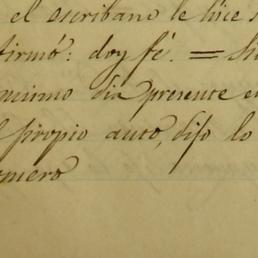 el escribano le hice s
firmó: doy fé. =
mismo dia presente e
propio auto, dijo lo
omero